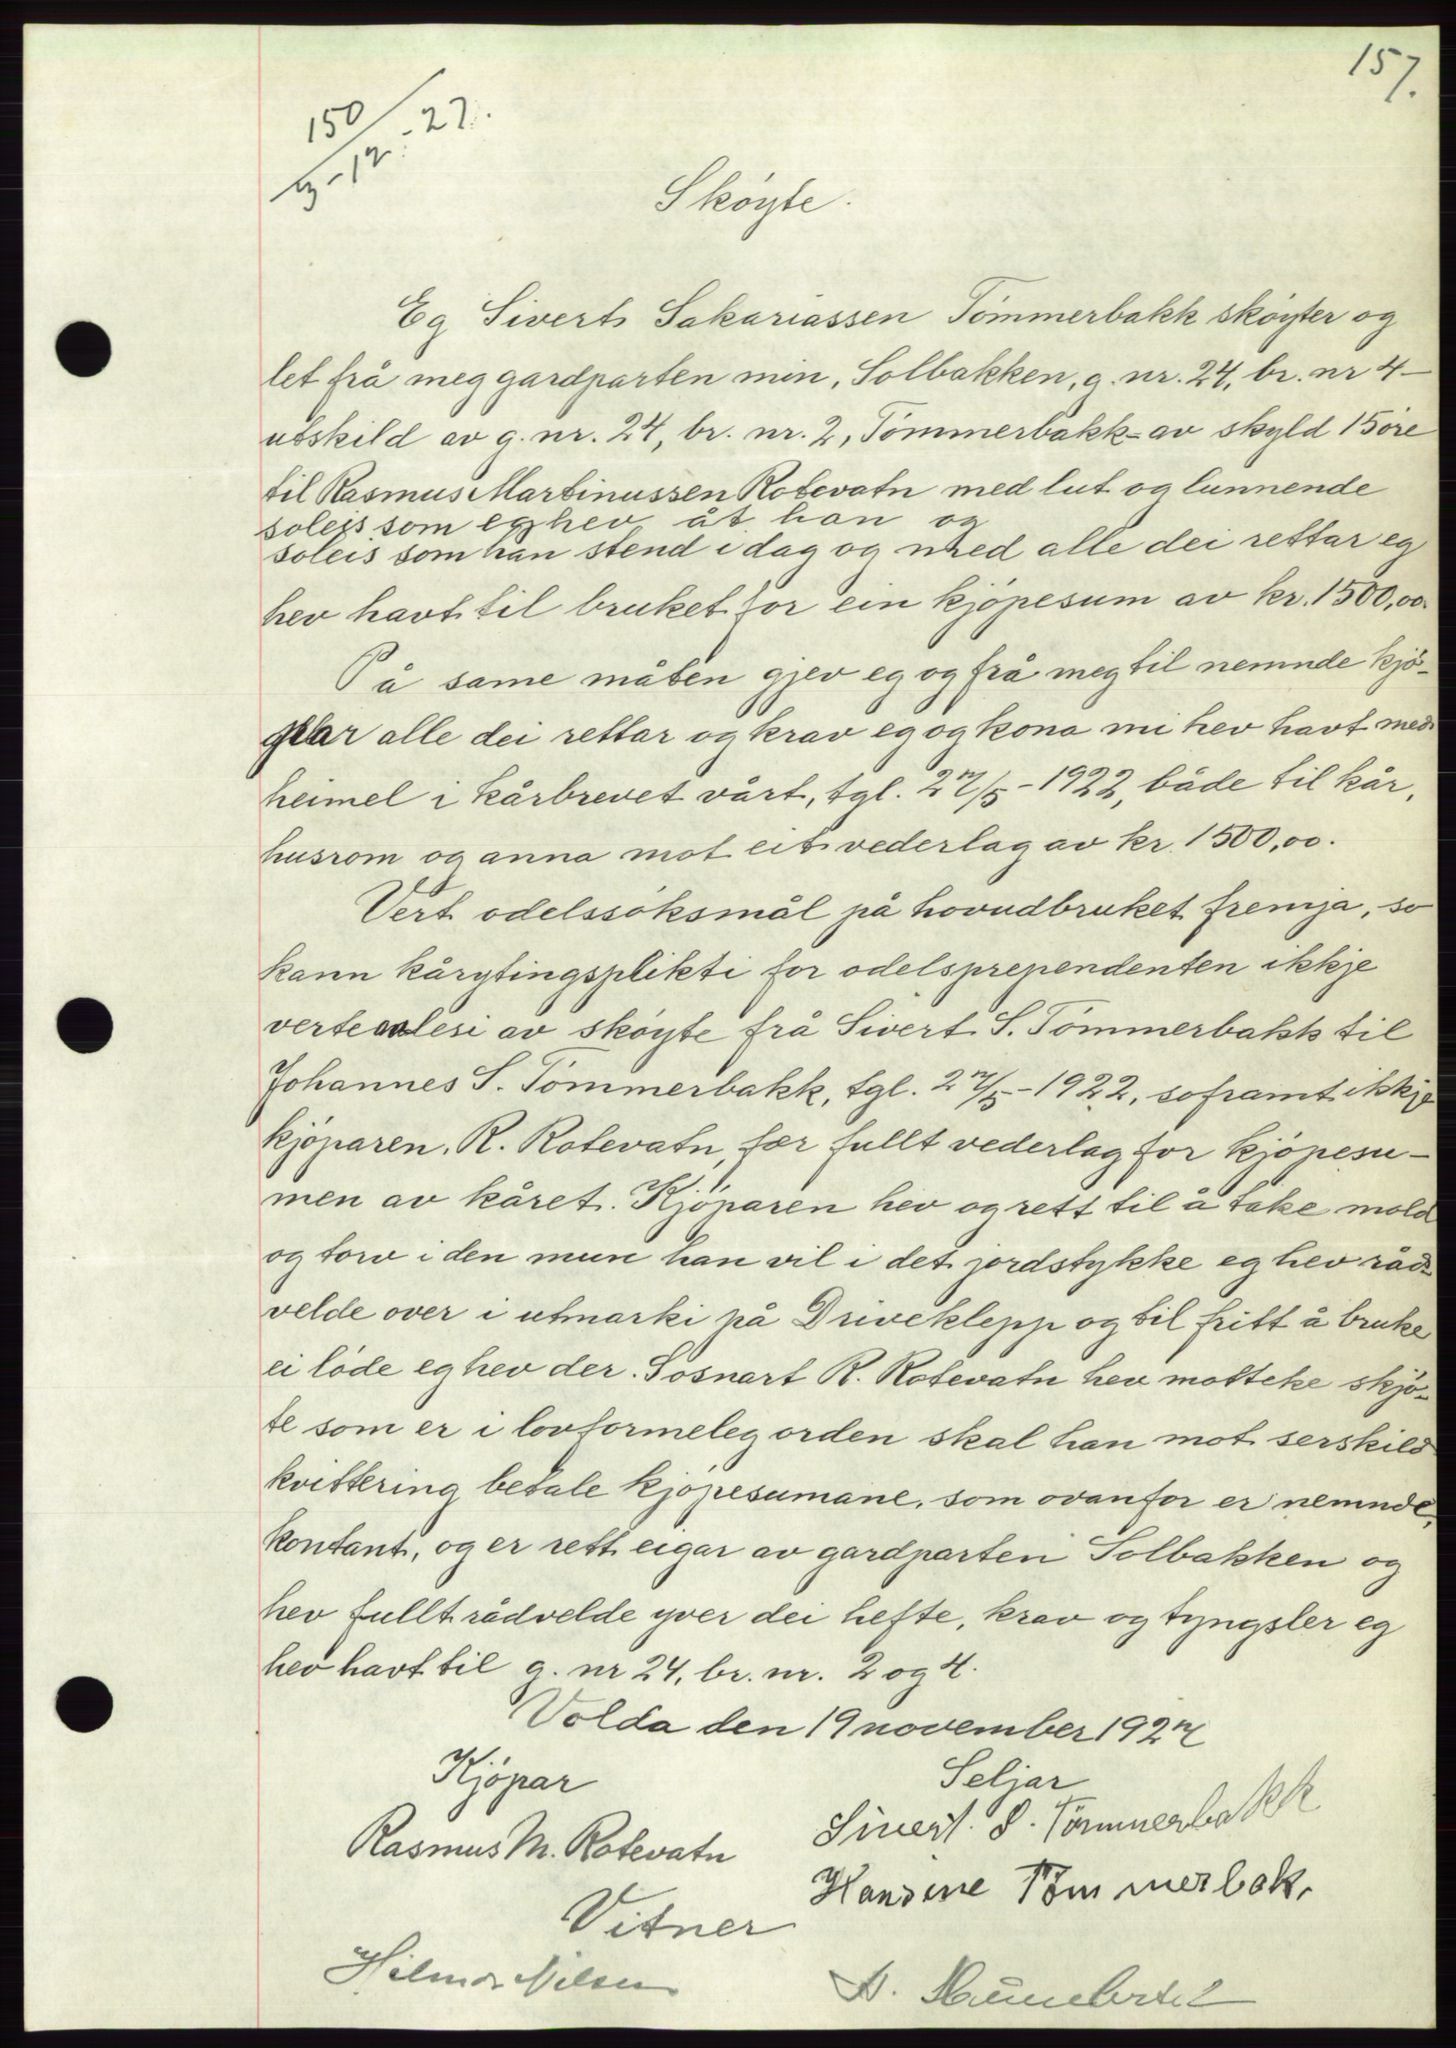 157.
150
3-12-27.
Sköyte.
Eg Sivert Sakariassen Tömmerbakk sköyter og
let frå meg gardparten min, Solbakken, g. nr. 24, br. nr 4 –
utskild av g. nr. 24, br. nr. 2, Tömmerbakk – av skyld 15 öre
til Rasmus Martinussen Rotevatn med lut og lunnende
soleis som eg hev åt han og
soleis som han stend i dag og med alle dei rettar eg
hev havt til bruket for ein kjöpesum av kr. 1500,00.
På same måten gjev eg og frå meg til nemnde kjö-
par alle dei rettar og krav eg og kona mi hev havt med
heimel i kårbrevet vårt, tgl. 27/5 – 1922, både til kår,
husrom og anna mot eit vederlag av kr. 1500,00.
Vert odelssöksmål på hovudbruket fremja, so
kann kårytingsplikti for odelsprependenten ikkje
verte avlesi av sköyte frå Sivert S. Tömmerbakk til
Johannes S. Tömmerbakk, tgl. 27/5 – 1922, soframt ikkje
kjöparen, R. Rotevatn, fær fullt vederlag for kjöpesu-
men av kåret. Kjöparen hev og rett til å take mold
og torv i den mun han vil i det jordstykke eg hev råd-
velde over i utmarki på Driveklepp og til fritt å bruke
ei löde eg hev der. Sosnart R. Rotevatn hev motteke skjö-
te som er i lovformeleg orden skal han mot serskild
kvittering betale kjöpesumane, som ovanfor er nemnde,
kontant, og er rett eigar av gardparten Solbakken og
hev fullt rådvelde yver dei hefte, krav og tyngsler eg
hev havt til g. nr 24, br. nr. 2 og 4.
Volda den 19 november 1927
Kjöpar Seljar
Rasmus M. Rotevatn Sivert. S. Tømmerbakk
Hansine Tømmerbak.
Vitner
Hilmar Nilsen A.